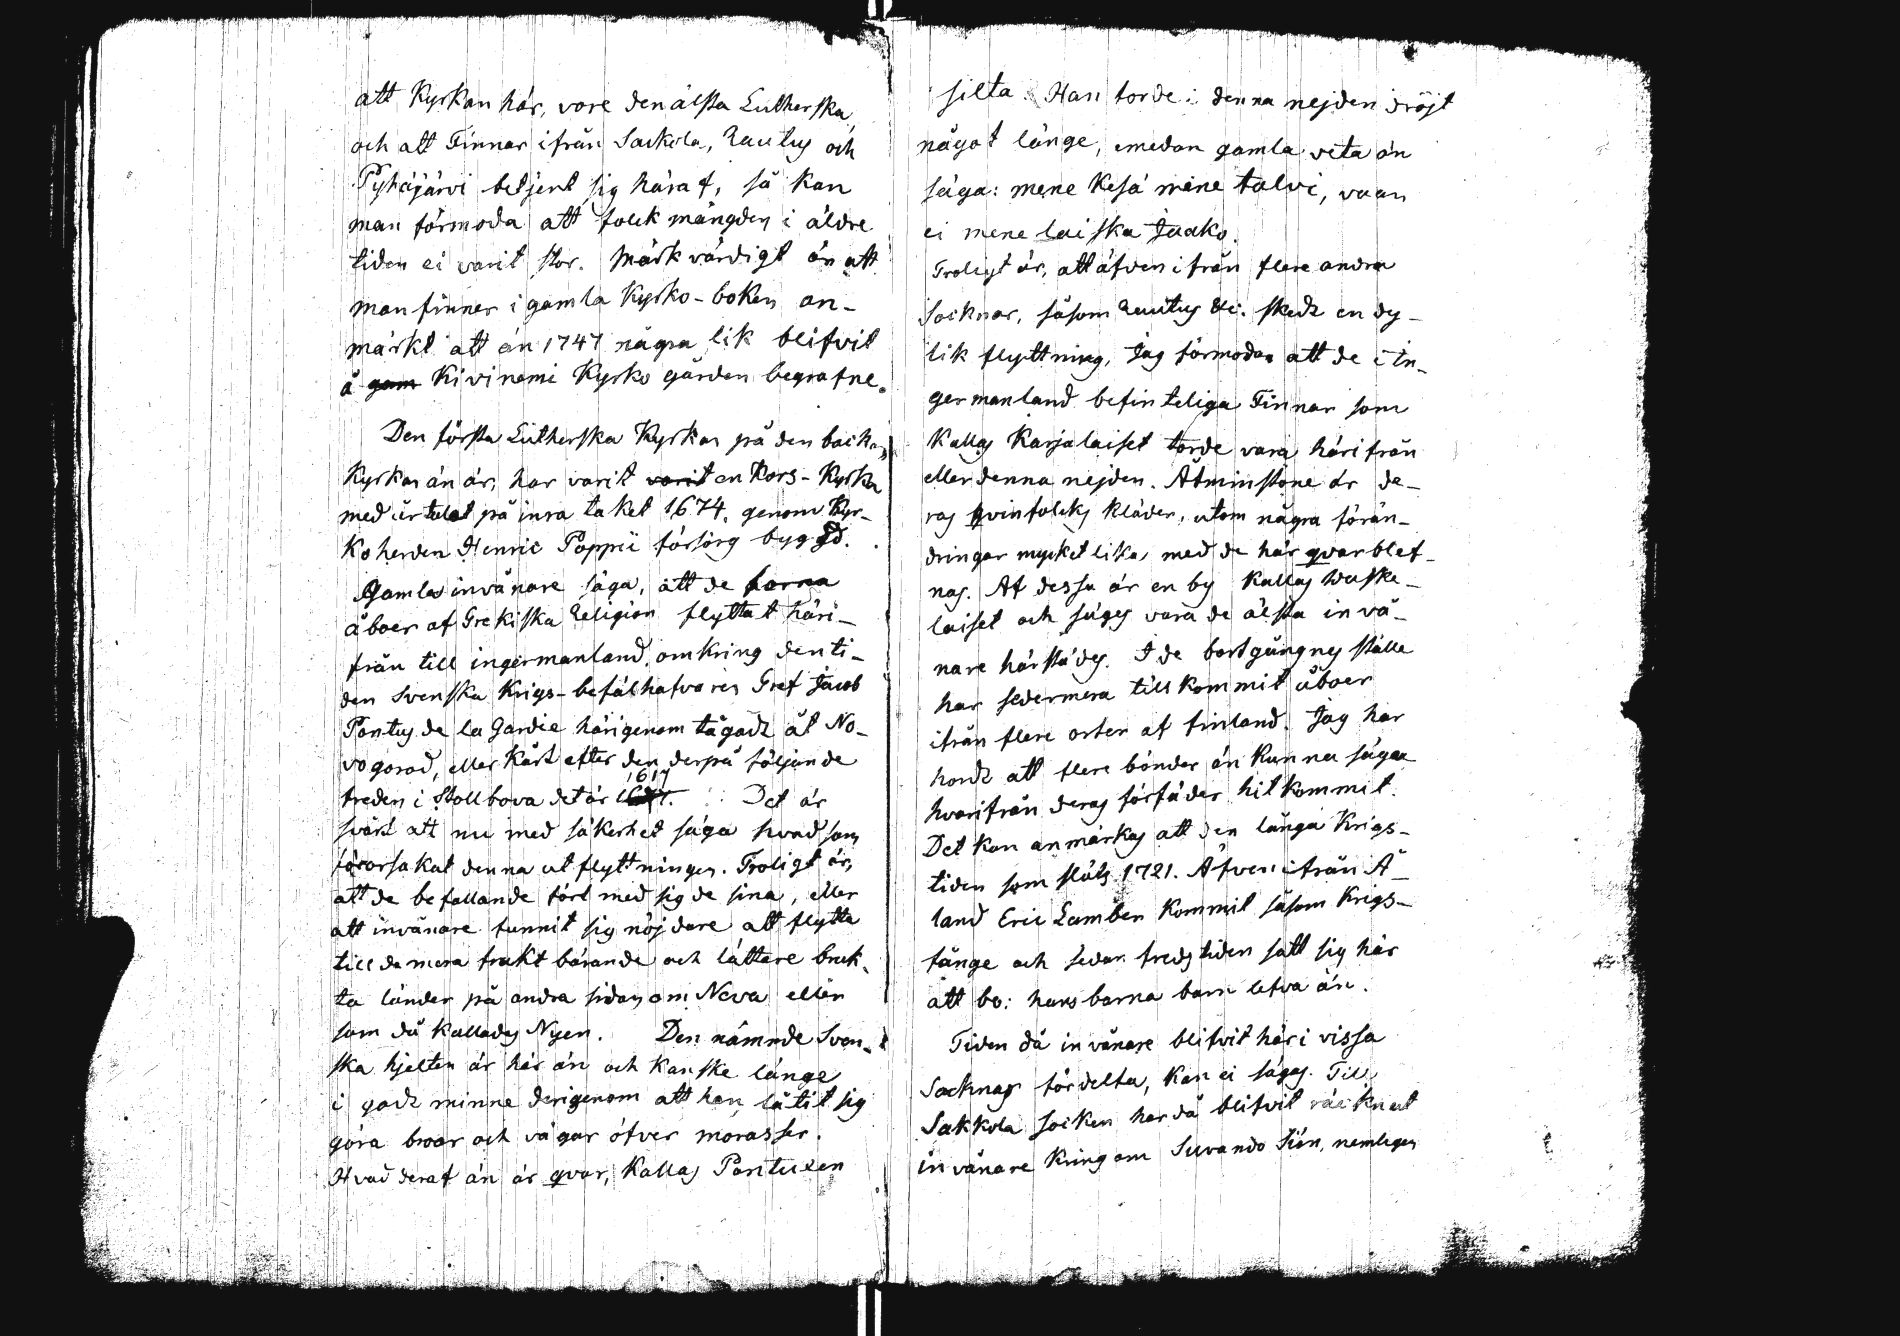 att Kyrkan här, vore den älsta Lutherska
och att Finnar ifrån Sackola, Rautus och
Pyhäjärvi betjent sig häraf, så kan
man förmoda att folck mängden i äldre
tiden ei varit stor. Märkvärdigt är att
man finner i gamla Kyrko-boken an-
märkt att än 1747 några lik blifvit
å gam Kivinemi Kyrko gården begrafne.
Den första Lutherska Kyrkan på den back
Kyrkan än är, har varit varit en Kors-Kyrka
med årtalet på inra taket 1674, genom Kyr-
koherden Henric Poppii försörg byggd.
Gamla invånare säga, att de forna
åboer af Grekiska Religion flyttat häri-
från till ingermanland, omkring den ti-
den Svenska Krigs-befälhafvaren Gref Jacob
Pontus de la Gardie härigenom tågade åt No-
vogorod, eller kårt efter den derpå följande
freden i Stollbova det är 1617. Det är
svårt att nu med säkerhet säga hvad som
förorsakat denna utflyttningen. Troligt är,
att de befallande fört med sig de sina, eller
att invånare funnit sig nöjdare att flytta
till de mera fruktbärande och lättare bruk-
ta länder på andra sidan om Neva ellér
som då kallades Nyen. Den nämnde Sven-
ska hjelten är här än och kanske länge
i godt minne derigenom att han låtit sig
göra broar och vägar öfver morasser.
Hvad deraf än är qvar, kallas Pontuxen
silta. Han torde i denna nejden dröjt
något länge, emedan gamla veta än
säga: mene kesä mene talvi, vaan
ei mene laiska Jaako.
Troligt är, att äfven ifrån flere andra
Socknar, såsom Rautus &c. skedt en dy-
lik flyttning. Jag förmodar att de i In-
germanland befinteliga Finnar som
kallas Karjalaiset torde vara härifrån
eller denna nejden. Åtminstone är de-
ras qvinfolcks kläder, utom några förän-
dringar mycket lika, med de här qvarblef-
nas. Af dessa är en by kallas Waske-
laiset och säges vara de älsta invå-
nare härstädes. I de bortgångnes ställe
har sedermera tillkommit åboer
ifrån flere orter af finland. Jag har
hordt att flere bönder än kunna säga
hvarifrån deras förfäder hitkommit.
Det kan anmärkas att den långa Krigs-
tiden som slöts 1721. Äfven ifrån Å-
land Eric Lamben kommit såsom Krigs-
fånge och sedan fredstiden satt sig här
att bo: hans barna barn lefva än.
Tiden då invånare blifvit här i vissa
Socknar fördelta, kan ei sägas. Till
Sakkola socken har då blifvit räcknat
invånare kring om Suvando Siön, nemligen